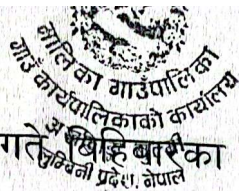 मालिका गाउँपालिका
गाउँ कार्यपालिकाको कार्यालय
गते बिहिबारका
लुम्बिनी प्रदेश, नेपाल